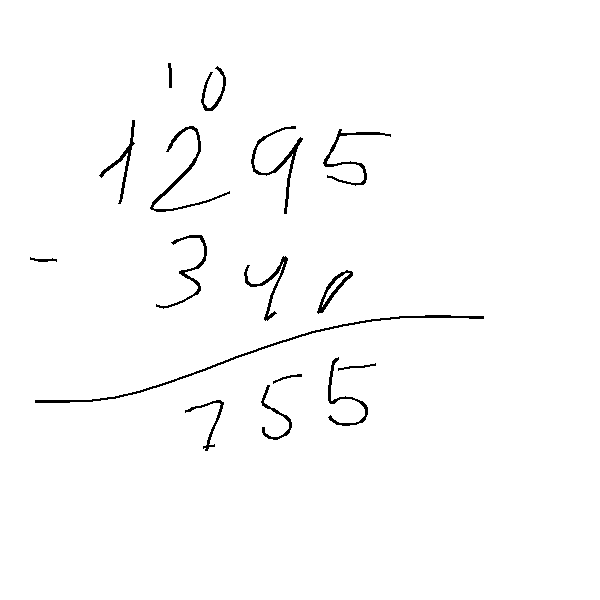 10
1295
- 340
755